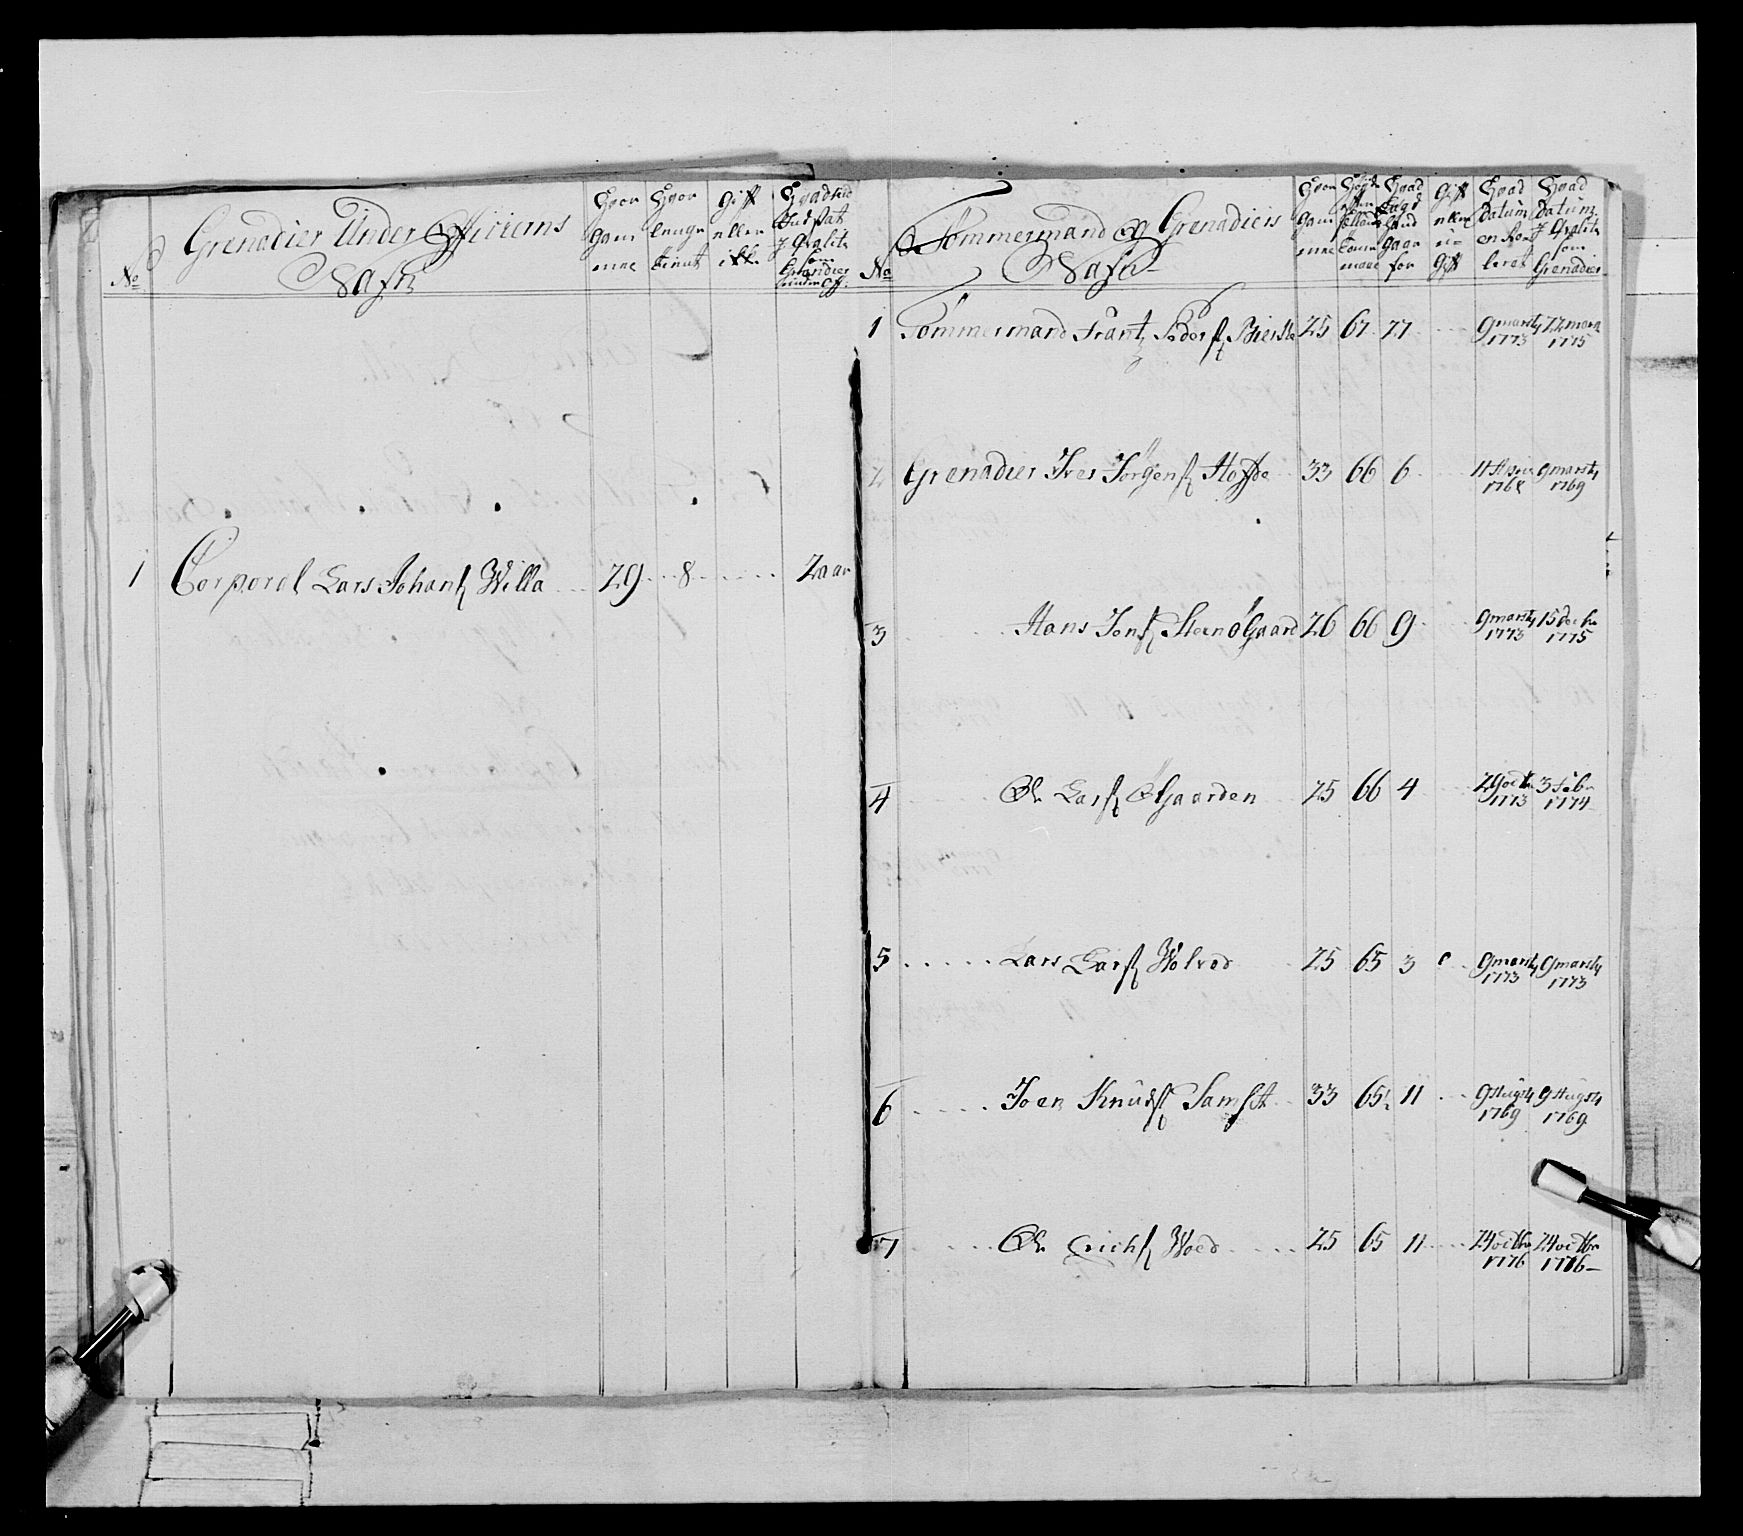 No
Grenadier Under Officierns
Nafn
Hvor
gam
mel
Hvor
lenge
tient
Gift
eller
ikke
Hvad tid
hand sat
j Qvalite
som
Grenadier
under Off:
1 Corporal Lars Johans Willa 29 8 2 aar
No
Tömmermand og Grenadiers
Nafn
Hvor
gam
mel
Hvad
Lagd
hand
gaar
for
Gift
eller
u=
gift
Hvad
Datum
enRol
leret
Hvad
Datum
j Qvalite
som
Grenadier
1 Tömmermand Frantz Peders 25 67 27 9 marty 1773 22 marty 1775
2 Grenadier Iver Jörgens Hoffde 33 66 6 9 marty 1769
3 Hans Jens 26 66 9 9 marty 1773 15 decbr 1775
4 Ole Lars Ölgaarden 25 66 4 29 octbr 1773 3 Febr 1774
5 Lars Lars Wolved 25 65 3 9 marty 1773 9 marty 1773
6 Joen Knuds 33 65½ 11 9 Augsty 1769 9 Augsty 1769
7 Ole Erichs Woed 25 65 11 24 octbr 1776 24 octbr 1776